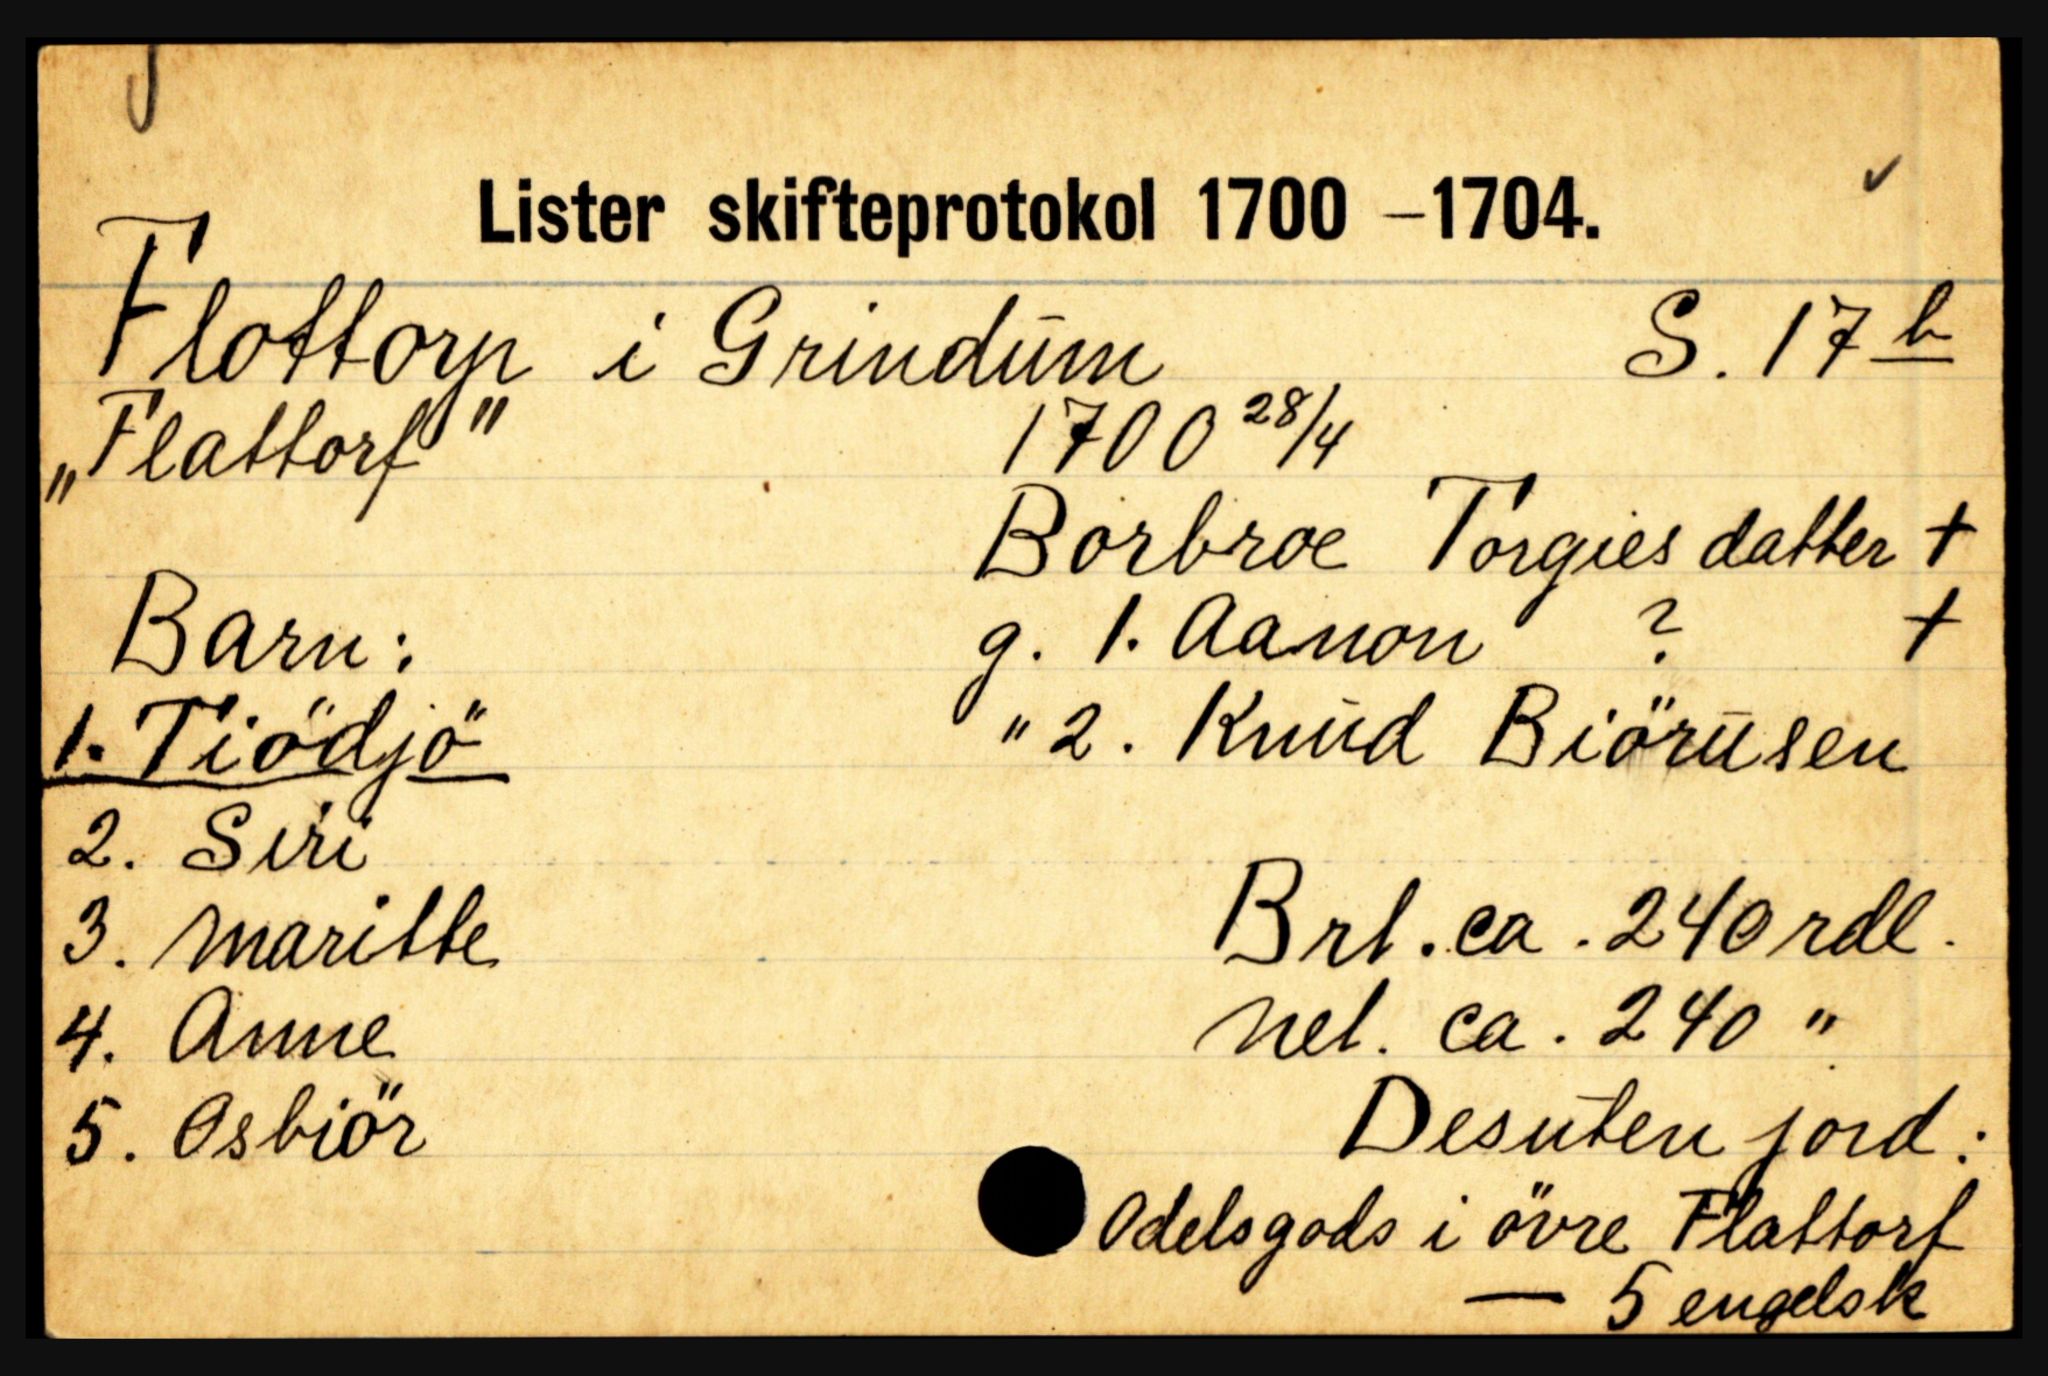 Lister skifteprotokol 1700 – 1704.
Flottorp i Grindum S. 17 b
„Flattorf" 1700 28/4
Borbroe Torgies datter +
Barn: g. 1. Aanon ? +
1. Tiödjö " 2. Knud Biörusen
2. Siri
3. Maritte Brt. ca. 240 rdl.
4. Anne Net. ca. 240 "
5. Osbiör Desuten jord:
Odelsgods i övre Flattorf
— 5 engelsk